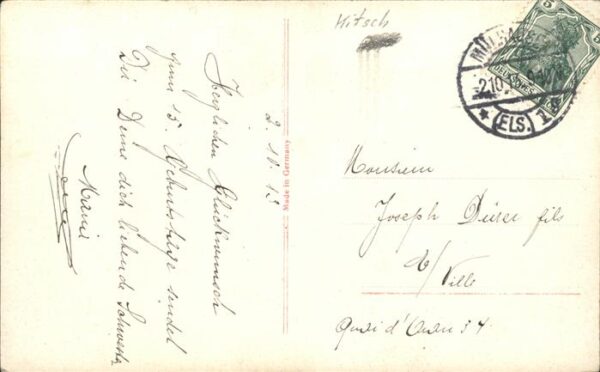 2.10.13
Herzlichen Glückwunsch
zum 15. Geburtstage sendet
Dir Deine dich liebende Schwester
Maria
Made in Germany
Kitsch
MÜLHAUSEN
2.10.
(ELS.)
5
5
Monsieur
Joseph Dürr fils
E/Ville
Quai d'